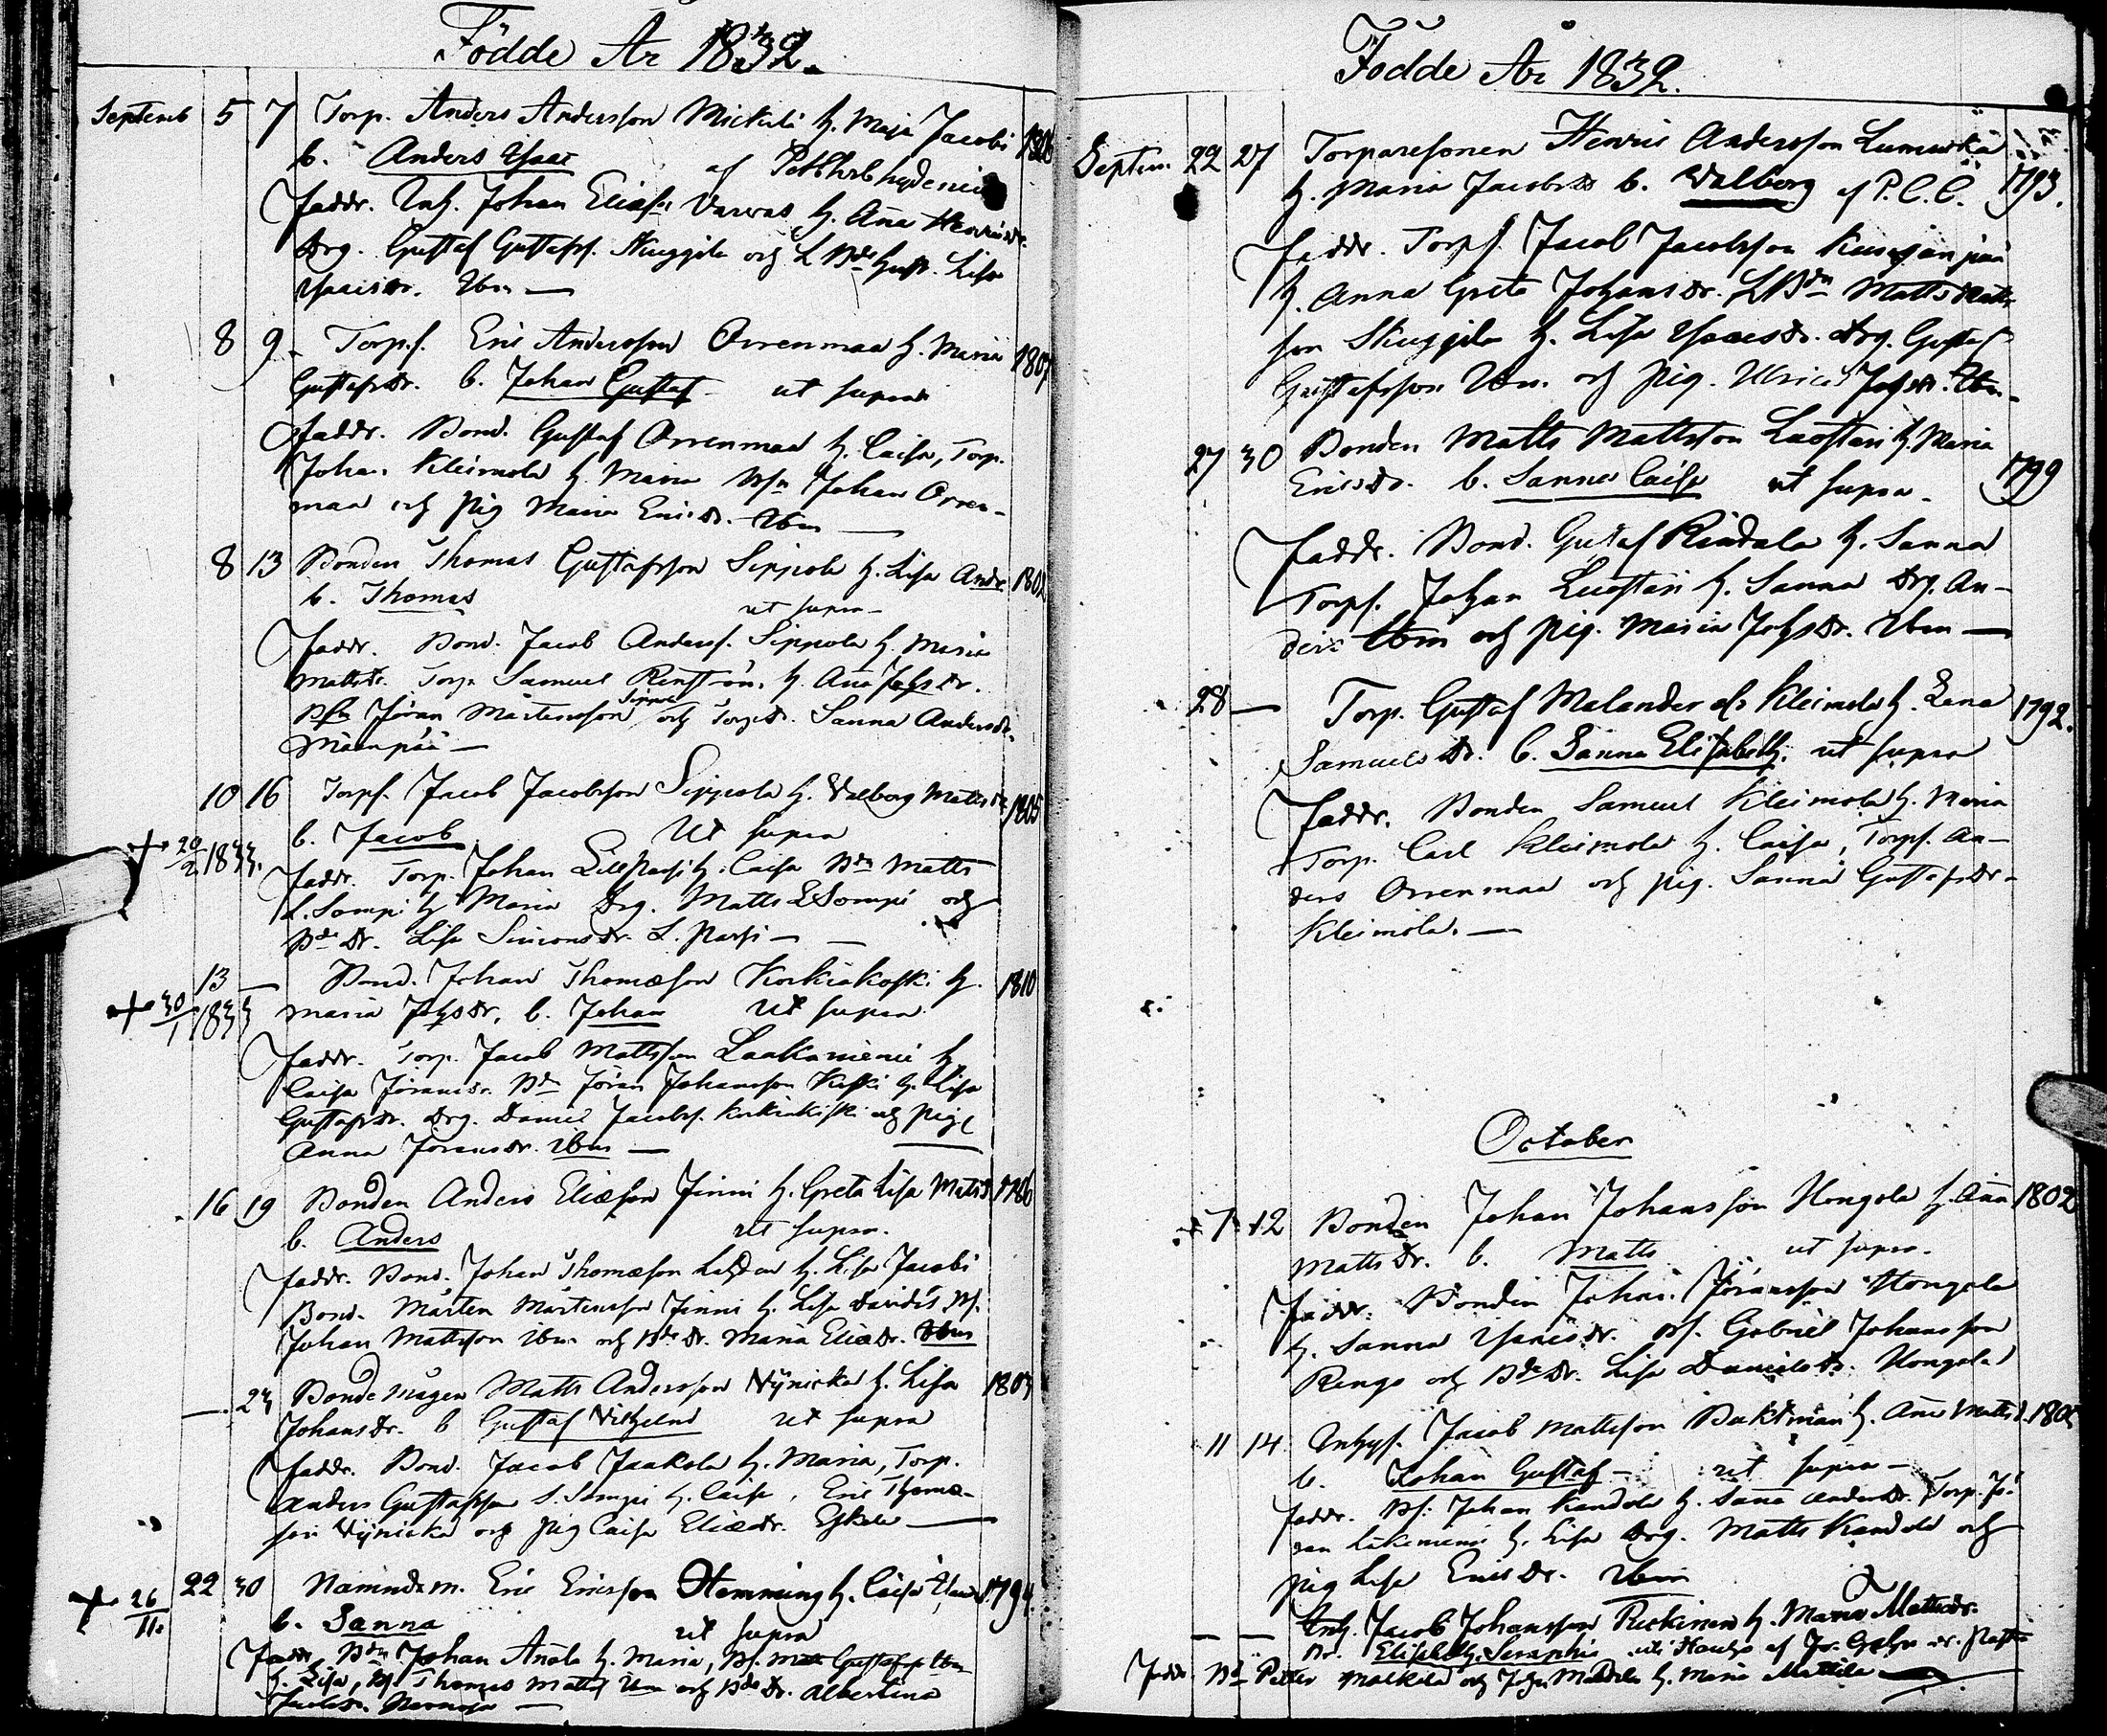 Födde År 1832.
Septemb 5 7 Torp. Anders Andersson Mickila h. Maja Jacobi
b. Anders Isaac af
Faddr. Inh. Johan Eliass. Varvas h. Ana Henricsdr.
Drg. Gustaf Gustafss. Skuggila och L. Lisa
Isaacsdr. Ibm —
8 9 Torps. Eric Andersson Orrenmaa h. Maria 1807
Gustafsdr. b. Johan Gustaf ut supra
Faddr. Bond. Gustaf Orrenmaa h. Caisa, Torp.
Johan Kleimola h. Maria Johan Orren-
maa och Pig Maria Ericsdr. Ibm —
8 13 Bonden Thomas Gustafsson Sippola h. Lisa Andr.
b. Thomas ut supra
Faddr. Bond. Jacob Anderss. Sippola h. Maria
Mattsdr. Torp. Samuel Renström h. Ana Johsdr.
Jöran Mårtensson och Torpdr. Sanna Andersdr.
Mäenpää —
10 16 Torps. Jacob Jacobsson Sippola h. Valborg Mattsdr 1805
b. Jacob Ut supra
+ 20/2 1833.
Faddr. Torp. Johan Lill Parsi h. Caisa Bdn Matts
L. Sompi h Maria Drg. Matts L Sompi och
Bdedr. Lisa Simonsdr. L. Parsi —
13 — Bond. Johan Thomæson Korkiakoski h. 1810
+ 30/1 1833 Maria Johsdr, b. Johan Ut supra
Faddr. Torp. Jacob Mattsson Laakaniemi h
Caisa Jöransdr. Bdn Jöran Johansson Koski h. Lisa
Gustafsdr. Drg. Daniel Jacobss. Korkiakoski och pig
Anna Jöransdr. Ibm —
16 19 Bonden Anders Eliæson Jinni h. Greta Lisa Matsd. 1786
b. Anders ut supra.
Faddr. Bond. Johan Thomæson h. Lisa Jacobs
Bond. Mårten Mårtensson Jinni h. Lisa Davids
Johan Mattsson Ibm och Bdedr. Maria Eliædr. Ibm
— 23 Bondemågen Matts Andersson Nÿnicka h. Lisa 1803
Johansdr. b Gustaf Vilhelm ut supra
Faddr. Bond. Jacob Jaakola h. Maria, Torp.
Anders Gustafsson L. Sompi h. Caisa, Eric Thomæ-
son Nÿnicka och pig Caisa Eliædr. Eskola —
22 30 Nämndem. Eric Ericsson Hemming h. Caisa 1794.
+ 26/11. b. Sanna ut supra
Faddr. Bdn Johan Anola h. Maria, Ibm
h. Lisa, Thomas Matts. Ibm och Bdedr. Albertina
Jacobsdr.
Födde År 1832.
Septem. 22 27 Torparesonen Henric Andersson Lumiska
h. Maria Jacobsdr b. Valborg af P.C.C. 1793.
Faddr. Torps. Jacob Jacobsson
h. Anna Greta Johansdr. LBdn Matts Matts-
son Skuggila h. Lisa Isaacsdr. Drg. Gustaf
Gustafsson Ibm. och pig. Ulrica Johsdr. Ibm
27 30 Bonden Matts Mattsson Luostari h. Maria 1799
Ericsdr. b. Sanna Caisa ut supra.
Faddr. Bond. Gustaf Rindala h. Sanna
Torps. Johan Luostari h. Sanna Drg. An-
ders Ibm och pig. Maria Johsdr. Ibm —
28 — Torp. Gustaf Malander Kleimola h. Lena 1792.
Samuelsdr. b. Sanna Elisabeth. ut supra
Faddr. Bonden Samuel Kleimola h. Maria
Torp. Carl Kleimola h. Caisa, Torps. An-
ders Orrenmaa och pig. Sanna Gustafsdr
Kleimola. —
October
7 12 Bonden Johan Johansson Hongola h. Ana 1802
Mattsdr. b. Matts ut supra.
Faddr. Bonden Johan Jöransson Hongola
h. Sanna Isaacsdr. Gabriel Johansson
Rengo och Bdedr. Lisa Danielsdr. Hongola
11 14 Inhys. Jacob Mattsson h. Ana Mattsd.
b. Johan Gustaf — ut supra —
Faddr. Johan Kandola h. Sana Andersdr. Torp. Jö-
ran h. Lisa Drg. Matts Kandola och
pig Lisa Ericsdr. Ibm
— — Inh. Jacob Johansson h. Maria Mattsdr.
Elisabeth Seraphia
Faddr. Petter och Johan h. Maria Mattila